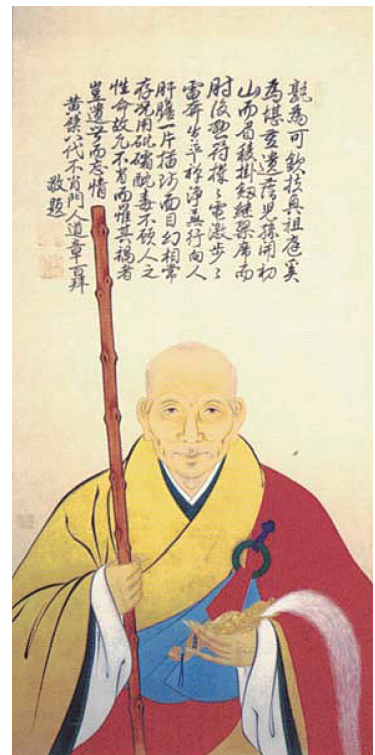 為可欽於真祖庭奚
為堪立遺蔭兒孫開初
山而眉稜掛劍繼席而
肘後無符機々電激步々
雷奔生平淨無行向人
肝膽一片描面目幻相常
存況用砒礵酖毒不顧人之
性命故凡不肖而惟其稱者
豈遺世而忘情
黃檗八代不肖門人道章百拜
敬題